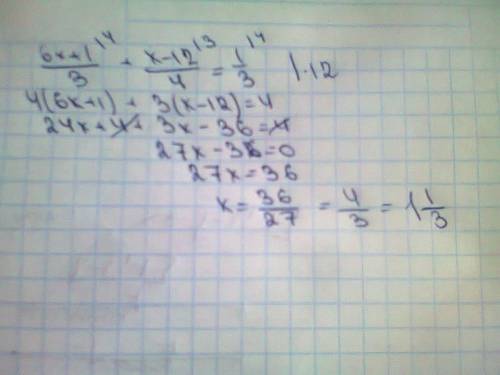 (6x+1)/3 ^(\4) + (x-12)/4 ^(\3) = 1/3 ^(\4) | · 12
4(6x+1) + 3(x-12) = 4
24x + 4 + 3x - 36 = 4
27x - 36 = 0
27x = 36
x = 36/27 = 4/3 = 1 1/3